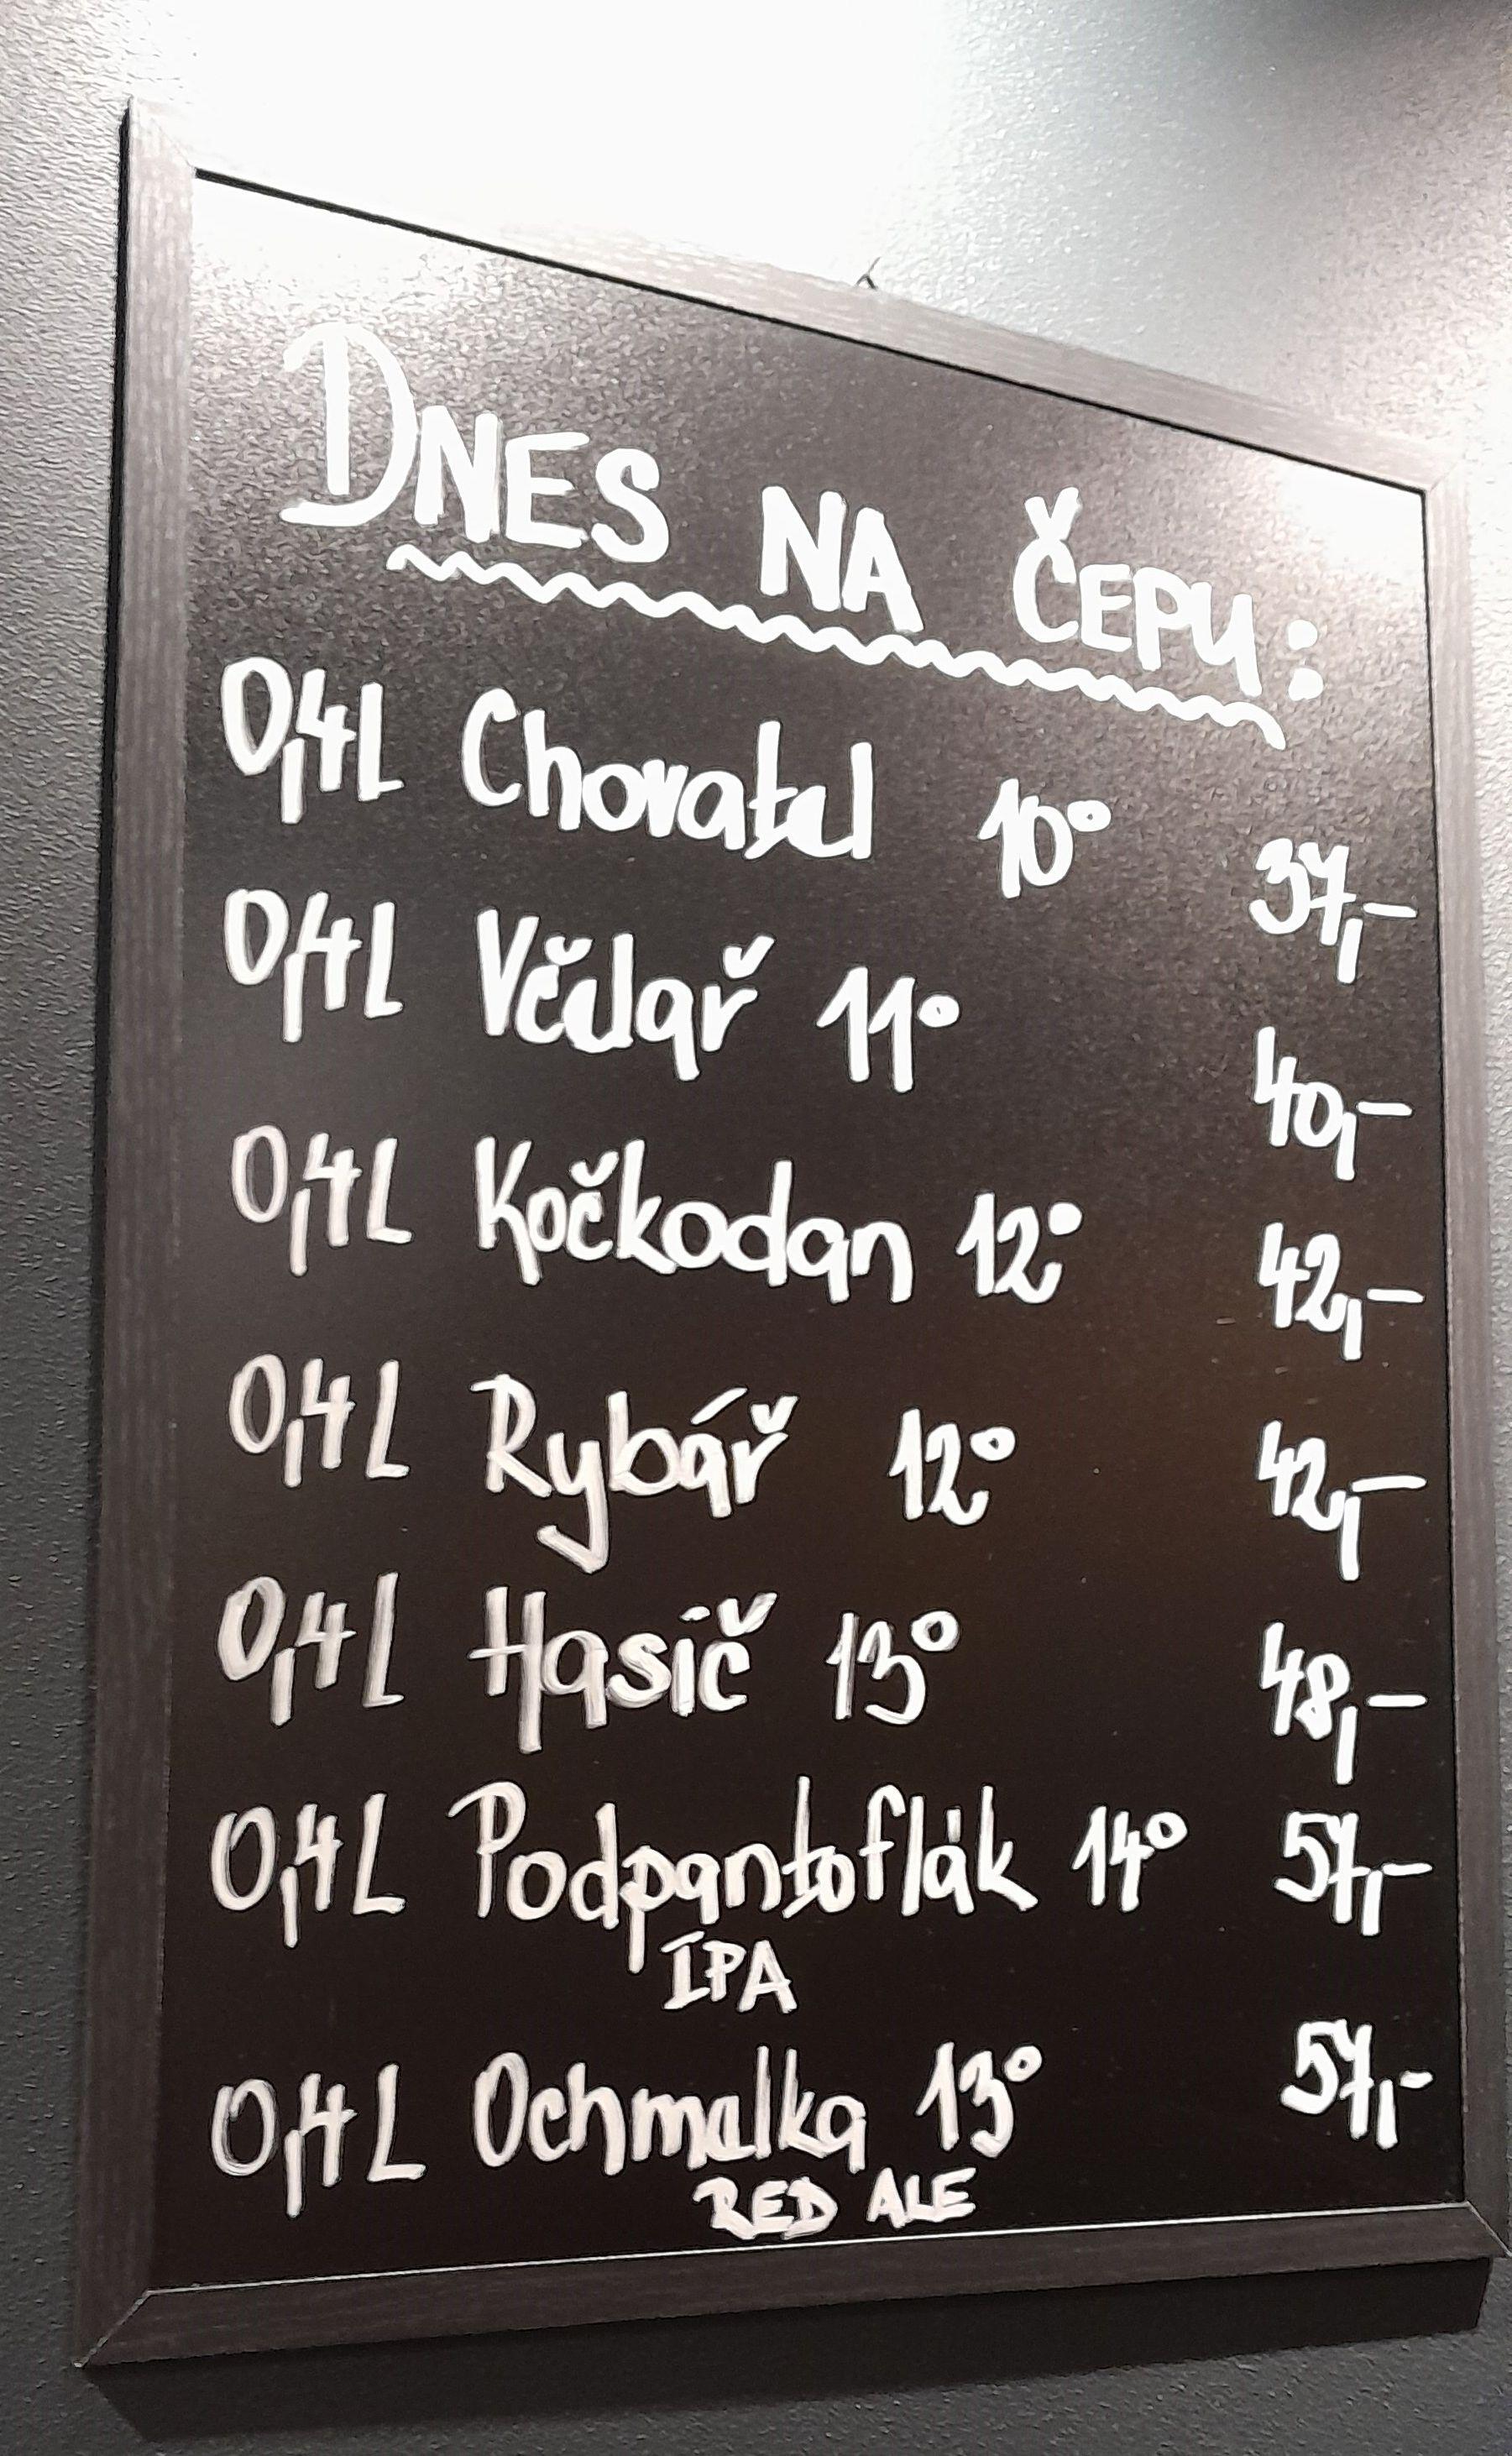 DNES NA ČEPU:
0,4L Chovatel 10° 37,-
0,4L Včelař 11° 40,-
0,4L Kočkodan 12° 42,-
0,4L Rybář 12° 42,-
0,4L Hasič 13° 48,-
0,4L Podpantoflák 14° 57,-
IPA
0,4L Ochmelka 13° 57,-
RED ALE